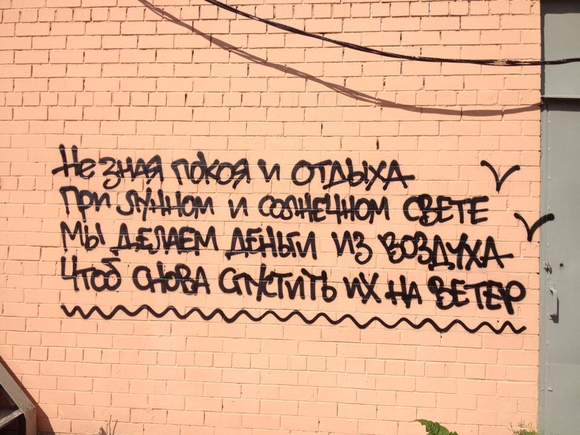 Не зная покоя и отдыха
При лунном и солнечном свете
Мы делаем деньги из воздуха
Чтоб снова спустить их на ветер